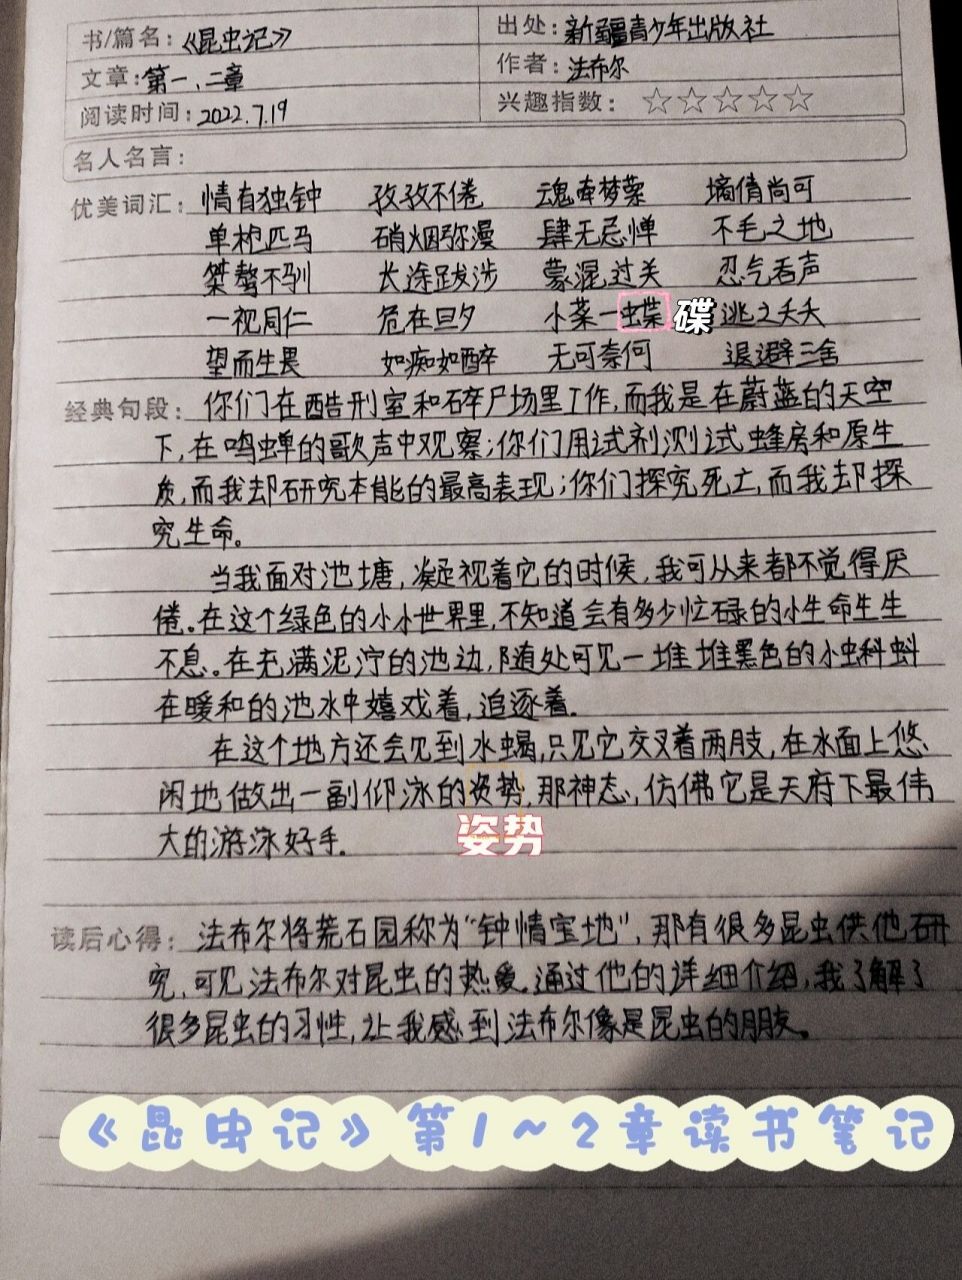 书/篇名：《昆虫记》 出处：新疆青少年出版社
文章：第一、二章 作者：法布尔
阅读时间：2022.7.19 兴趣指数：☆☆☆☆☆
名人名言：
优美词汇：情有独钟 孜孜不倦 魂牵梦萦 墒倩尚可
单枪匹马 硝烟弥漫 肆无忌惮 不毛之地
桀骜不驯 长途跋涉 蒙混过关 忍气吞声
一视同仁 危在旦夕 小菜一蝶 碟 逃之夭夭
望而生畏 如痴如醉 无可奈何 退避三舍
经典句段：你们在酷刑室和碎尸场里工作，而我是在蔚蓝的天空
下，在鸣蝉的歌声中观察；你们用试剂测试蜂房和原生
质，而我却研究本能的最高表现；你们探究死亡，而我却探
究生命。
当我面对池塘，凝视着它的时候，我可从来都不觉得厌
倦。在这个绿色的小小世界里，不知道会有多少忙碌的小生命生生
不息。在充满泥泞的池边，随处可见一堆堆黑色的小蝌蚪
在暖和的池水中嬉戏着，追逐着。
在这个地方还会见到水蝎，只见它交叉着两肢，在水面上悠
闲地做出一副仰泳的姿势，那神态，仿佛它是天府下最伟
大的游泳好手。 姿势
读后心得：法布尔将荒石园称为“钟情宝地”，那有很多昆虫供他研
究，可见法布尔对昆虫的热爱。通过他的详细介绍，我了解了
很多昆虫的习性，让我感到法布尔像是昆虫的朋友。
《昆虫记》第1~2章读书笔记